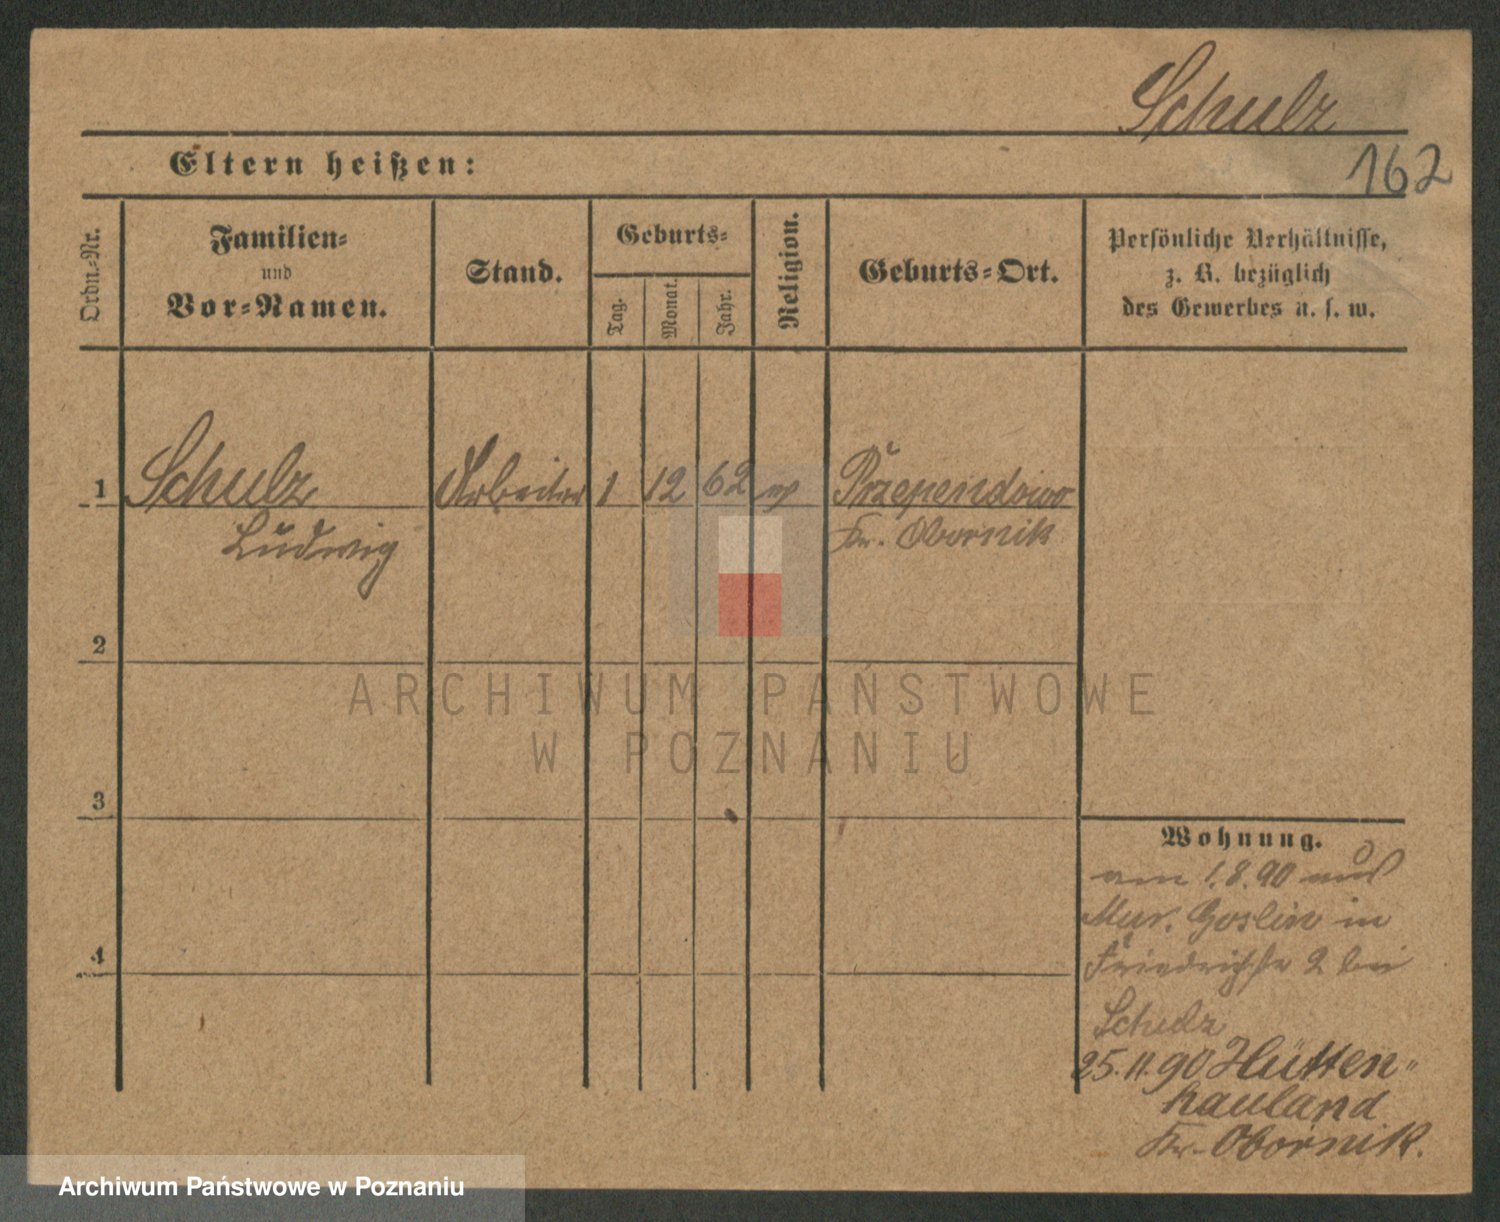 Schulz
Eltern heißen:
162
Ordn.-Nr.
Familien-
und
Vor-Namen.
Stand.
Geburts-
Tag.
Monat.
Jahr.
Religion.
Geburts-Ort.
Persönliche Verhältnisse,
z. B. bezüglich
des Gewerbes u. s. w.
1 Schulz Arbeiter 1 12 62 ev Przependowo
Ludwig Kr. Obornik
2
ARCHIWUM PAŃSTWOWE
W POZNANIU
3
Wohnung.
am 1.8.90 aus
Mur. Goslin in
4
Friedrichstr 2 bei
Schulz
25.11.90 Hütten-
hauland
Kr. Obornik.
Archiwum Państwowe w Poznaniu